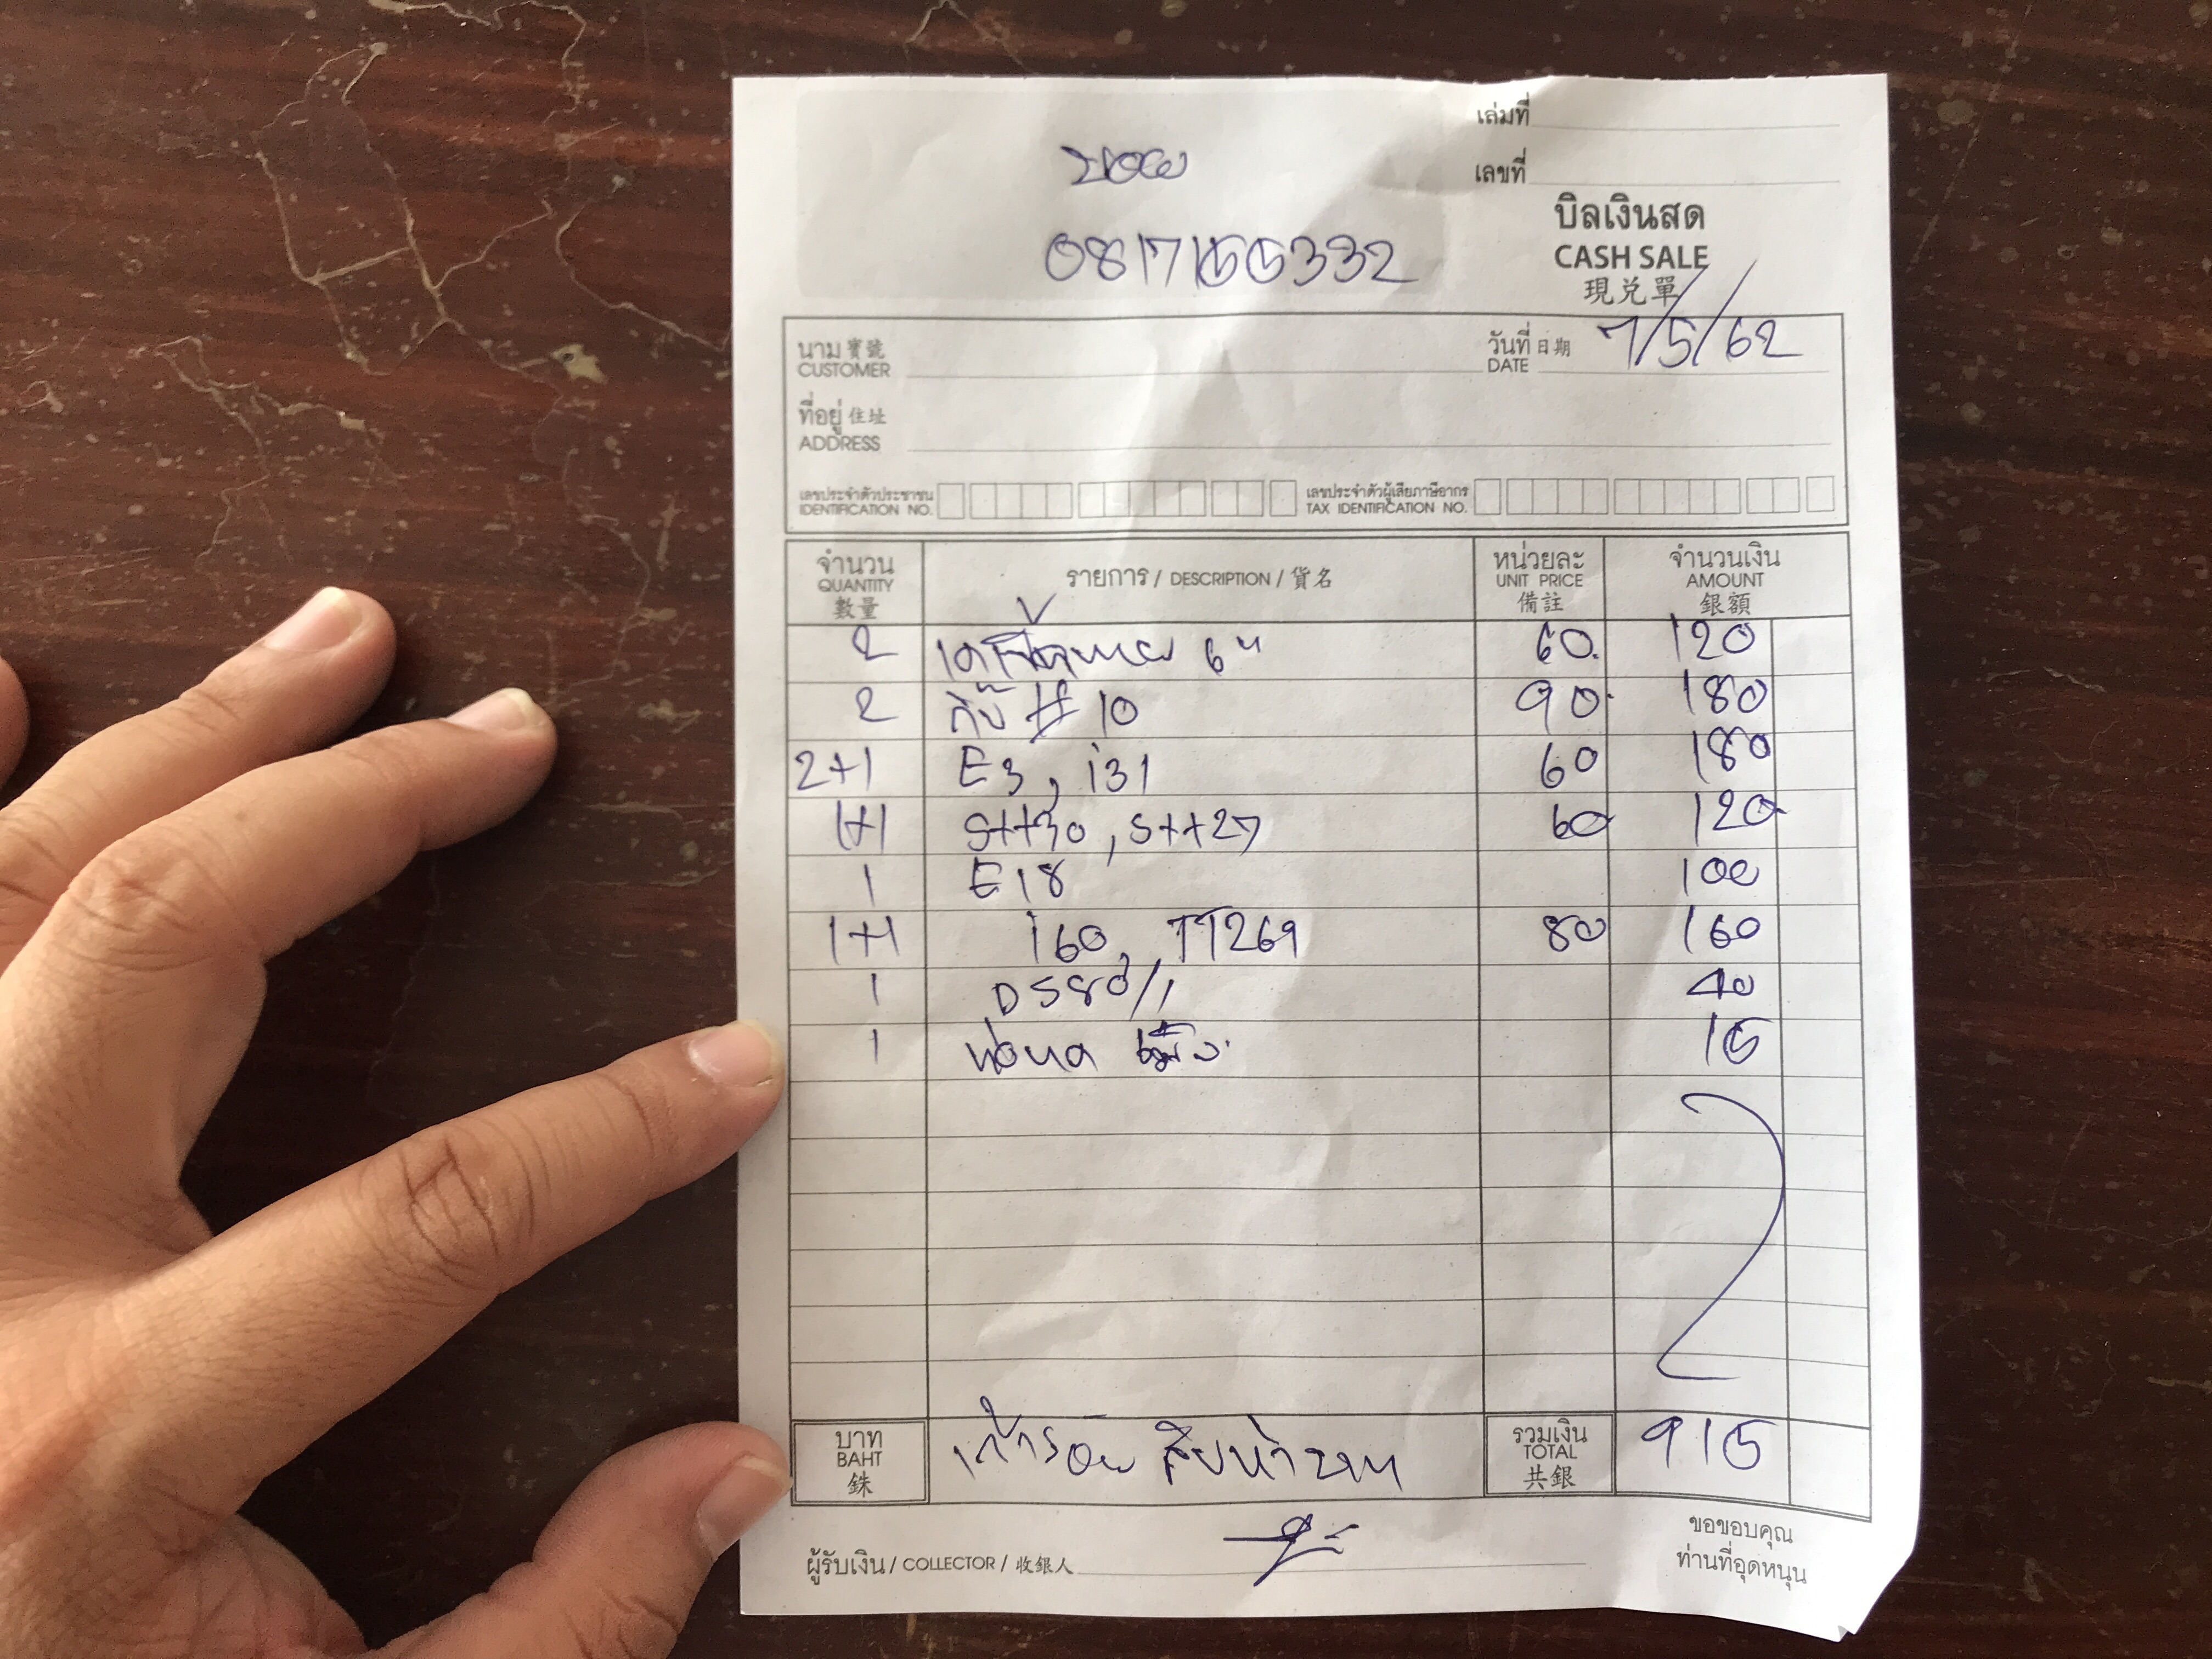 เล่มที่
เลขที่
0817155332
บิลเงินสด
CASH SALE
現兑單
นาม 寶號
CUSTOMER
วันที่ 日期 7/5/62
DATE
ที่อยู่ 住址
ADDRESS
เลขประจำตัวประชาชน
IDENTIFICATION NO.
เลขประจำตัวผู้เสียภาษีอากร
TAX IDENTIFICATION NO.
จำนวน รายการ / DESCRIPTION / 貨名 หน่วยละ จำนวนเงิน
QUANTITY UNIT PRICE AMOUNT
數量 備註 銀額
2 6" 60. 120
2 กิ๊บ # 10 90. 180
2+1 E3, i31 60 180
1+1 S++30, S++27 60 120
1 E18 100
1+1 i60, TT269 80 160
1 DS80/1 40
1 15
บาท เก้าร้อย สิบห้าบาท รวมเงิน 915
BAHT TOTAL
銖 共銀
ผู้รับเงิน / COLLECTOR / 收銀人
ขอขอบคุณ
ท่านที่อุดหนุน